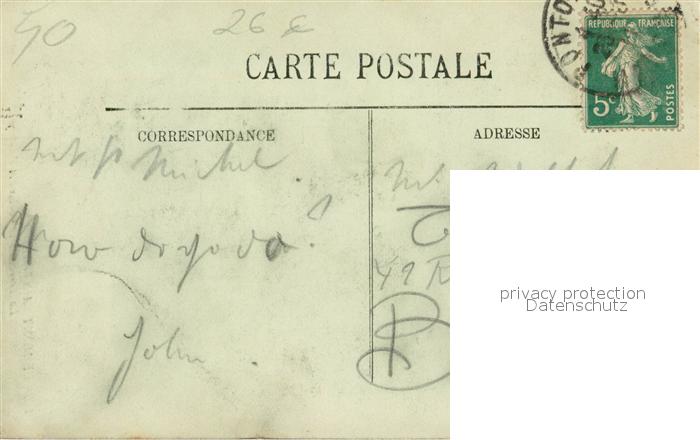 90 26 e
CARTE POSTALE
REPUBLIQUE FRANÇAISE
5c POSTES
PONTO
CORRESPONDANCE
ADRESSE
Mt St Michel.
How do yo do?
John.
41 R
privacy protection
Datenschutz